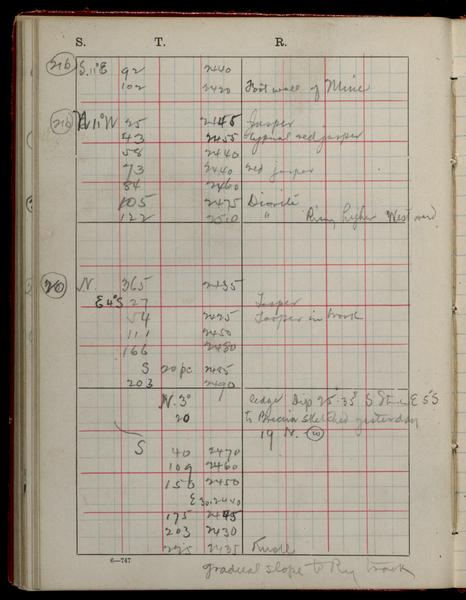 S. T. R.
216 S. 11° E 92 2440
102 2420 Foot wall of Mine
216 N 11° W 25 2445 Jasper
43 2455 typical red jasper
58 2440
73 2440 red jasper
84 2460
105 2475 Diorite
122 2510 " Rising higher Westward
20 N. 365 2435
E 4° S 27 Jasper
54 2425 Jasper in
111 2450
166 2480
S 20 pc 2485
203 2490
N. 3° ledge Dip 25°-35° S E 5° S
20 to Breccia sketched yesterday
19 N. 20
S 40 2470
109 2460
150 2450
E 30. 2440
175 2445
203 2430
225 2435 Knoll
6—747
gradual slope to Ry track